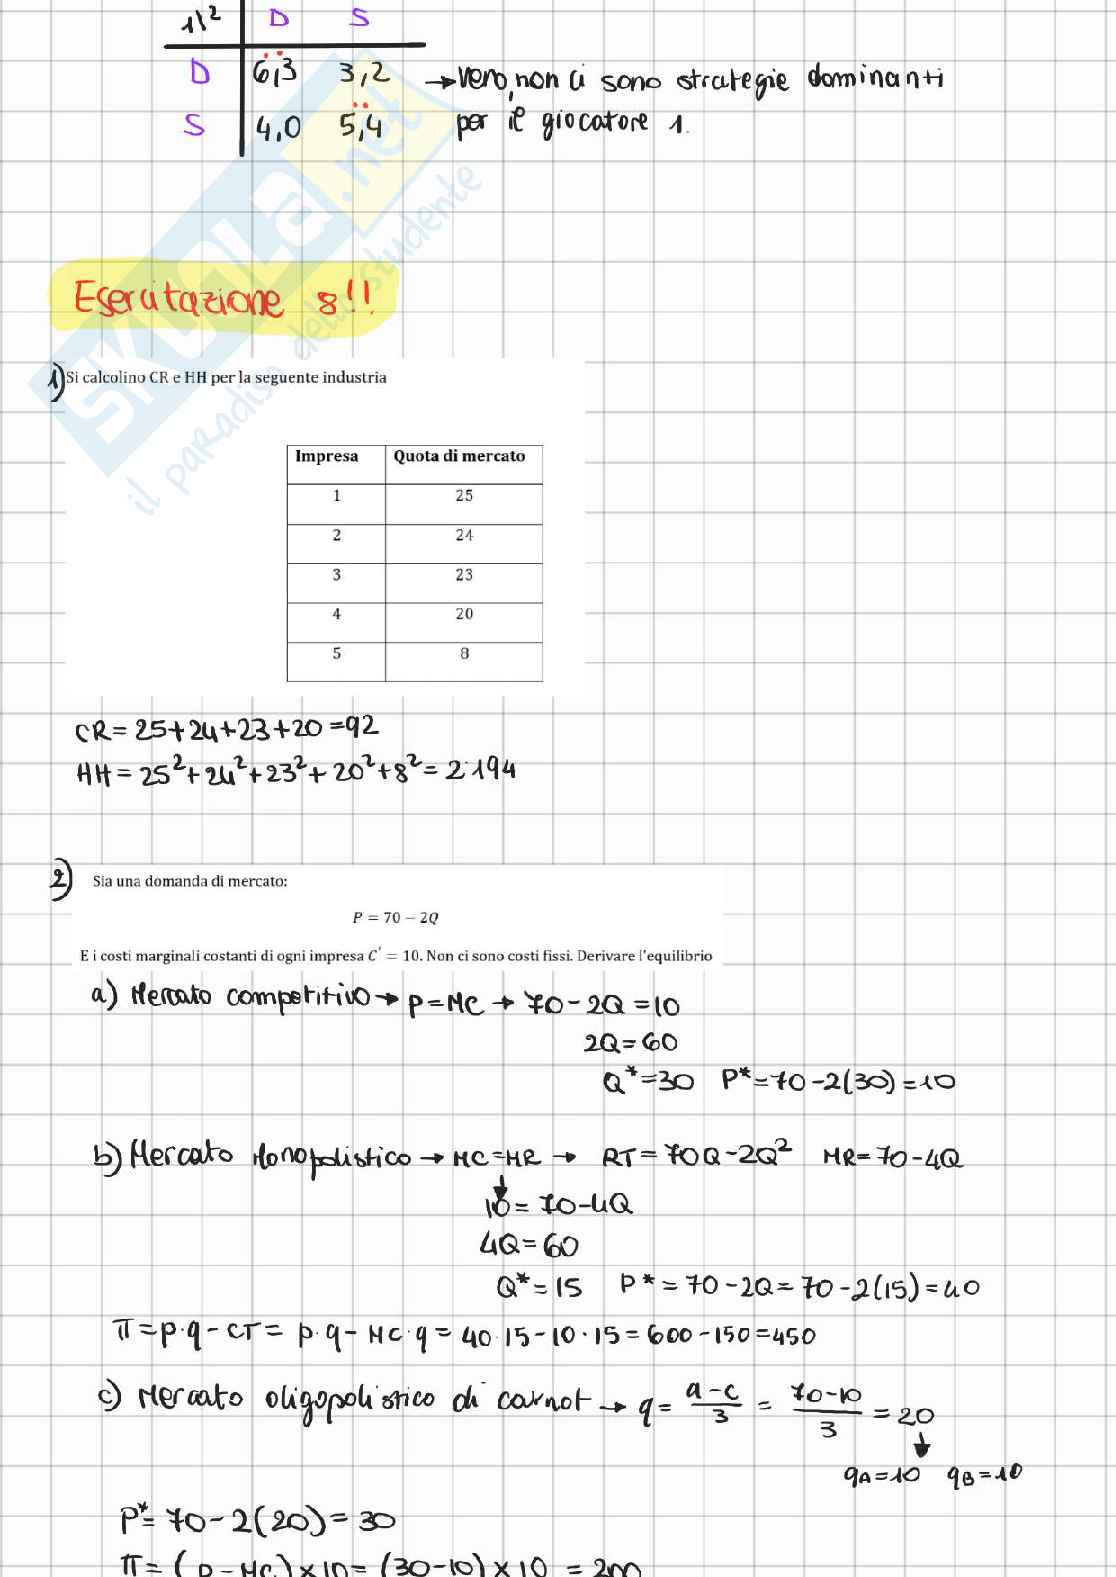 1\2 D S
D 6,3 3,2 →vero, non ci sono strategie dominanti
S 4,0 5,4 per il giocatore 1.
SKUOLA.net
il paradiso dello studente
Esercitazione 8!!
1) Si calcolino CR e HH per la seguente industria
Impresa Quota di mercato
1 25
2 24
3 23
4 20
5 8
CR = 25+24+23+20 = 92
HH = 25²+24²+23²+20²+8² = 2·194
2) Sia una domanda di mercato:
P = 70 − 2Q
E i costi marginali costanti di ogni impresa C' = 10. Non ci sono costi fissi. Derivare l'equilibrio
a) Mercato competitivo → P=MC → 70-2Q=10
2Q=60
Q*=30 P*=70-2(30)=10
b) Mercato Monopolistico → MC=MR → RT=70Q-2Q² MR=70-4Q
↓
10=70-4Q
4Q=60
Q*=15 P*=70-2Q=70-2(15)=40
π=p·q-CT= p·q-MC·q=40·15-10·15=600-150=450
c) Mercato oligopolistico di carnot → q= a-c/3 = 70-10/3 =20
↓
qA=10 qB=10
P*= 70-2(20)=30
π= (p-MC)×10=(30-10)×10 = 200